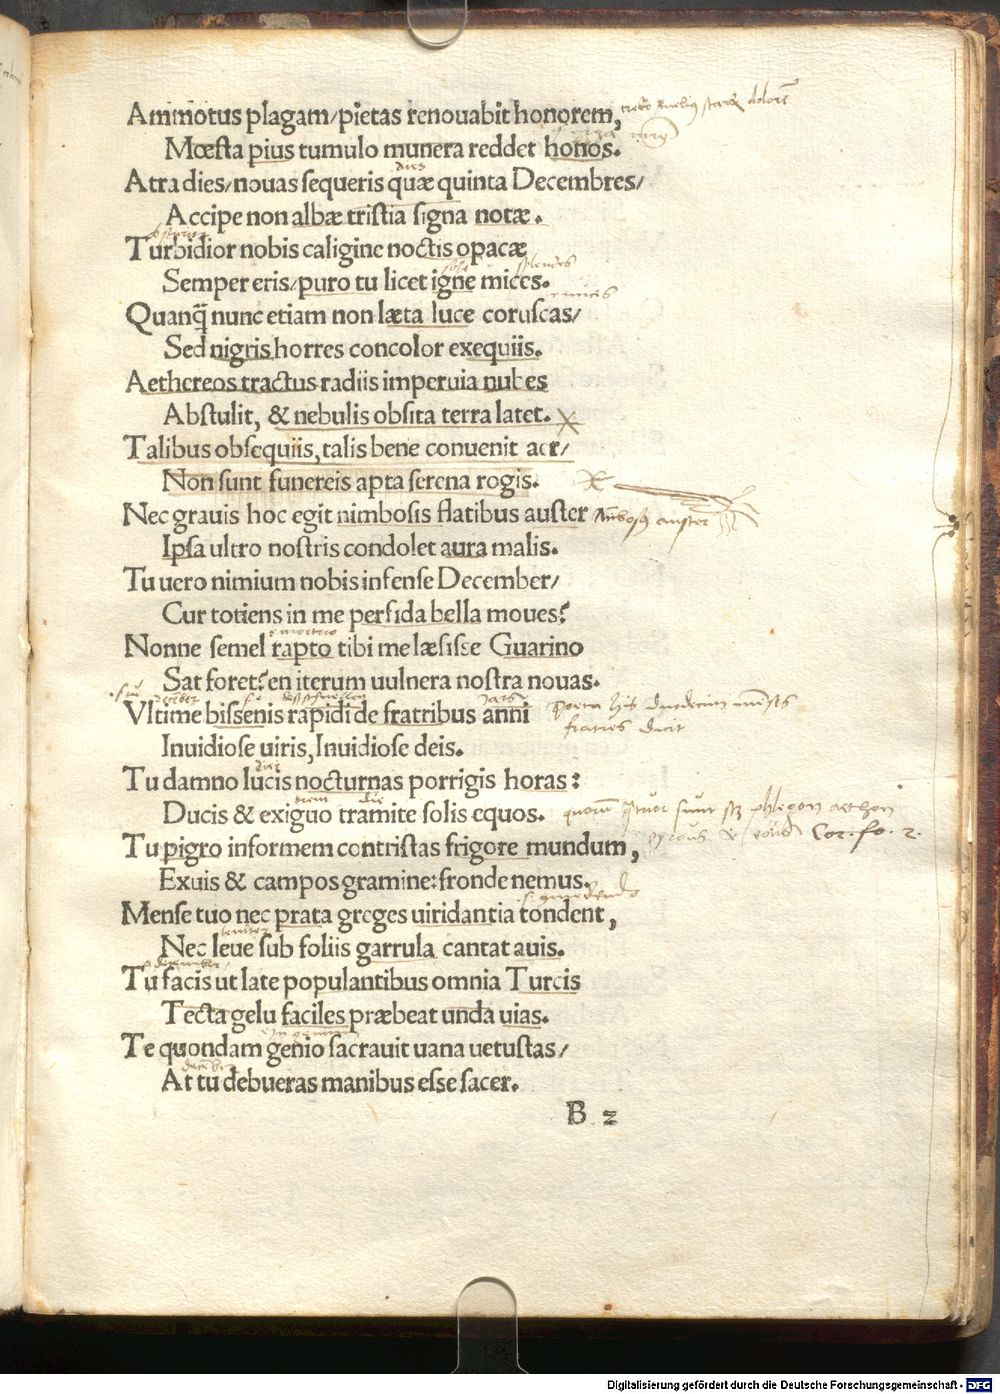 Ammotus plagam/pietas renouabit honorem,
Mœsta pius tumulo munera reddet honos.
Atra dies/nouas sequeris quæ quinta Decembres/
Accipe non albæ tristia signa notæ.
Turbidior nobis caligine noctis opacæ
Semper eris/puro tu licet igne mices.
Quanq̃ nunc etiam non læta luce coruscas/
Sed nigris horres concolor exequiis.
Aethereos tractus radiis imperuia nubes
Abstulit, & nebulis obsita terra latet.
Talibus obsequiis, talis bene conuenit aer/
Non sunt funereis apta serena rogis.
Nec grauis hoc egit nimbosis flatibus auster
Ipsa ultro nostris condolet aura malis.
Tu uero nimium nobis infense December/
Cur totiens in me perfida bella moues?
Nonne semel rapto tibi me læsisse Guarino
Sat foret? en iterum uulnera nostra nouas.
Vltime bissenis rapidi de fratribus anni
poeta his duodecim
fratres dicit
Inuidiose uiris, Inuidiose deis.
Tu damno lucis nocturnas porrigis horas:
Ducis & exiguo tramite solis equos.
Tu pigro informem contristas frigore mundum,
Exuis & campos gramine: fronde nemus.
Mense tuo nec prata greges uiridantia tondent,
Nec leue sub foliis garrula cantat auis.
Tu facis ut late populantibus omnia Turcis
Tecta gelu faciles præbeat unda uias.
Te quondam genio sacrauit uana uetustas/
At tu debueras manibus esse sacer.
B 2
Digitalisierung gefördert durch die Deutsche Forschungsgemeinschaft - DFG